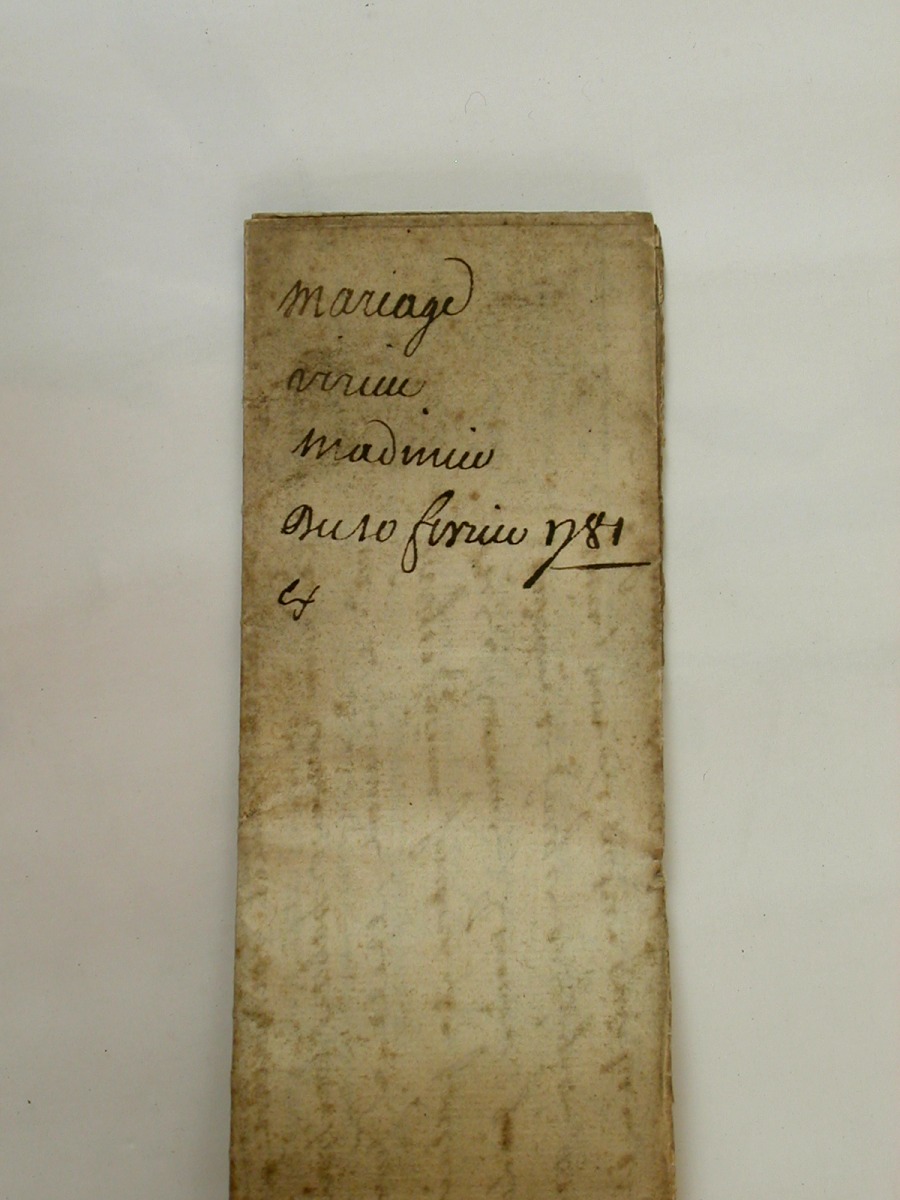 mariage
virieu
madinier
Du 10 fevrier 1781
Ex